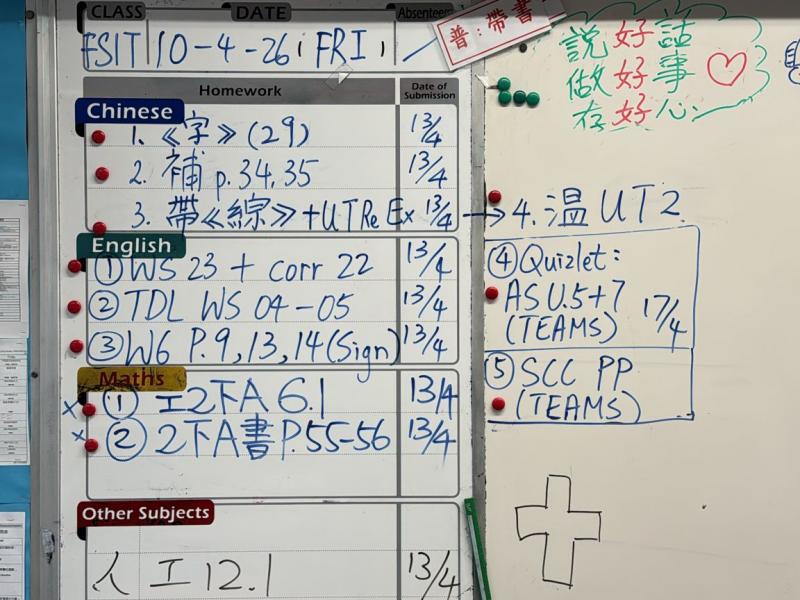 CLASS DATE Absentees
10-4-26 FRI
普:帶書
說好話
做好事
存好心
Homework Date of Submission
Chinese
1. 《字》(29) 13/4
2. 補 p.34,35 13/4
3. 帶《綜》+UTRe Ex 13/4 → 4. 温 UT2
English
① WS 23 + corr 22 13/4
② TDL WS 04-05 13/4
③ W6 P.9,13,14(Sign) 13/4
④ Quizlet:
ASU.5+7 17/4
(TEAMS)
⑤ SCC PP
(TEAMS)
Maths
① 工2下A 6.1 13/4
② 2下A書P.55-56 13/4
Other Subjects
人工12.1 13/4